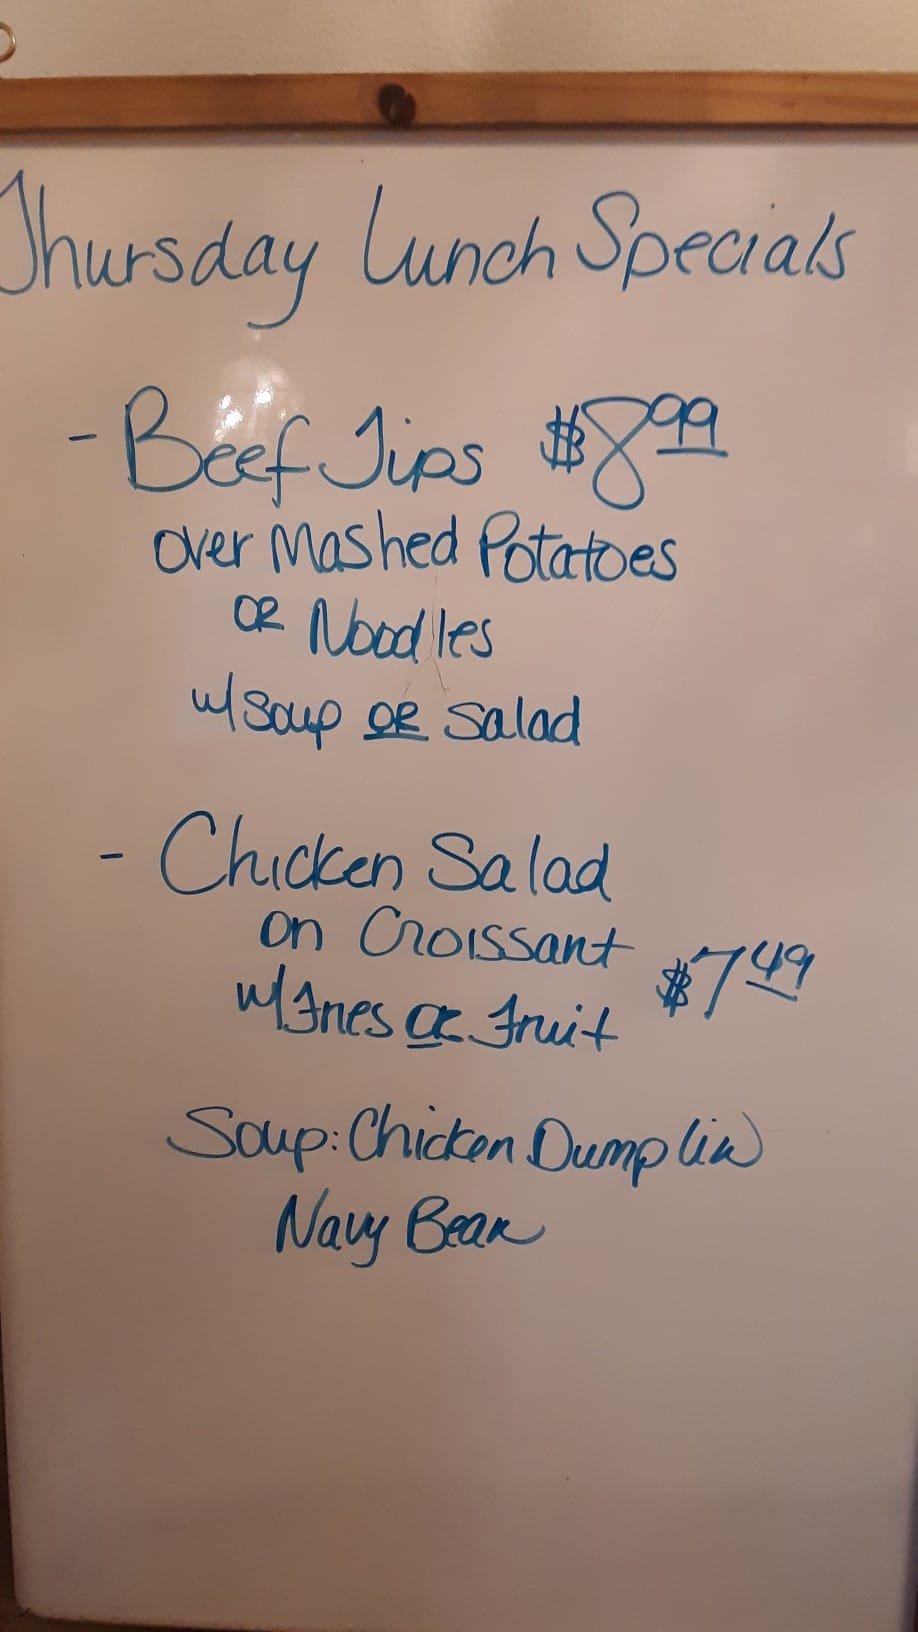 Thursday Lunch Specials
- Beef Tips $8.99
over Mashed Potatoes
OR Noodles
w/ Soup OR Salad
- Chicken Salad
on Croissant
$7.49
w/ Fries or Fruit
Soup: Chicken Dumplin
Navy Bean